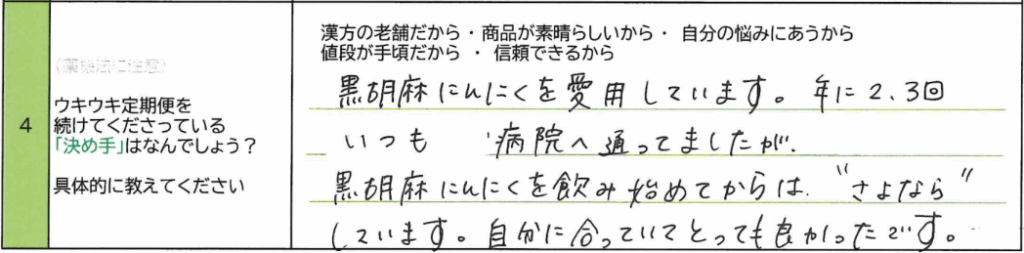 4
(薬機法に注意)
ウキウキ定期便を
続けてくださっている
「決め手」はなんでしょう?
具体的に教えてください
漢方の老舗だから・商品が素晴らしいから・ 自分の悩みにあうから
値段が手頃だから ・ 信頼できるから
黒胡麻にんにくを愛用しています。年に2.3回
いつも 病院へ通ってましたが、
黒胡麻にんにくを飲み始めてからは、"さよなら"
しています。自分に合っていてとっても良かったです。